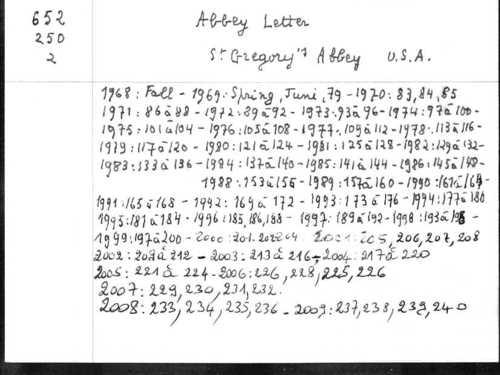 652
250
2
Abbey Letter
St Gregory's Abbey U.S.A.
1968: Fall - 1969: Spring, Juni, 79 - 1970: 83, 84, 85
1971: 86 à 88 - 1972: 89 à 92 - 1973: 93 à 96 - 1974: 97 à 100 -
1975: 101 à 104 - 1976: 105 à 108 - 1977: 109 à 112 - 1978: 113 à 116 -
1979: 117 à 120 - 1980: 121 à 124 - 1981: 125 à 128 - 1982: 129 à 132 -
1983: 133 à 136 - 1984: 137 à 140 - 1985: 141 à 144 - 1986: 145 à 148 -
1988: 153 à 156 - 1989: 157 à 160 - 1990: 161 à 164 -
1991: 165 à 168 - 1992: 169 à 172 - 1993: 173 à 176 - 1994: 177 à 180
1995: 181 à 184 - 1996: 185, 186, 188 - 1997: 189 à 192 - 1998: 193 à 196 -
1999: 197 à 200 - 2000: 201. 202 204 2001: 205, 206, 207, 208
2002: 209 à 212 - 2003: 213 à 216 - 2004: 217 à 220
2005: 221 à 224 - 2006: 226, 228, 225, 226
2007: 229, 230, 231, 232.
2008: 233, 234, 235, 236 - 2009: 237, 238, 239, 240